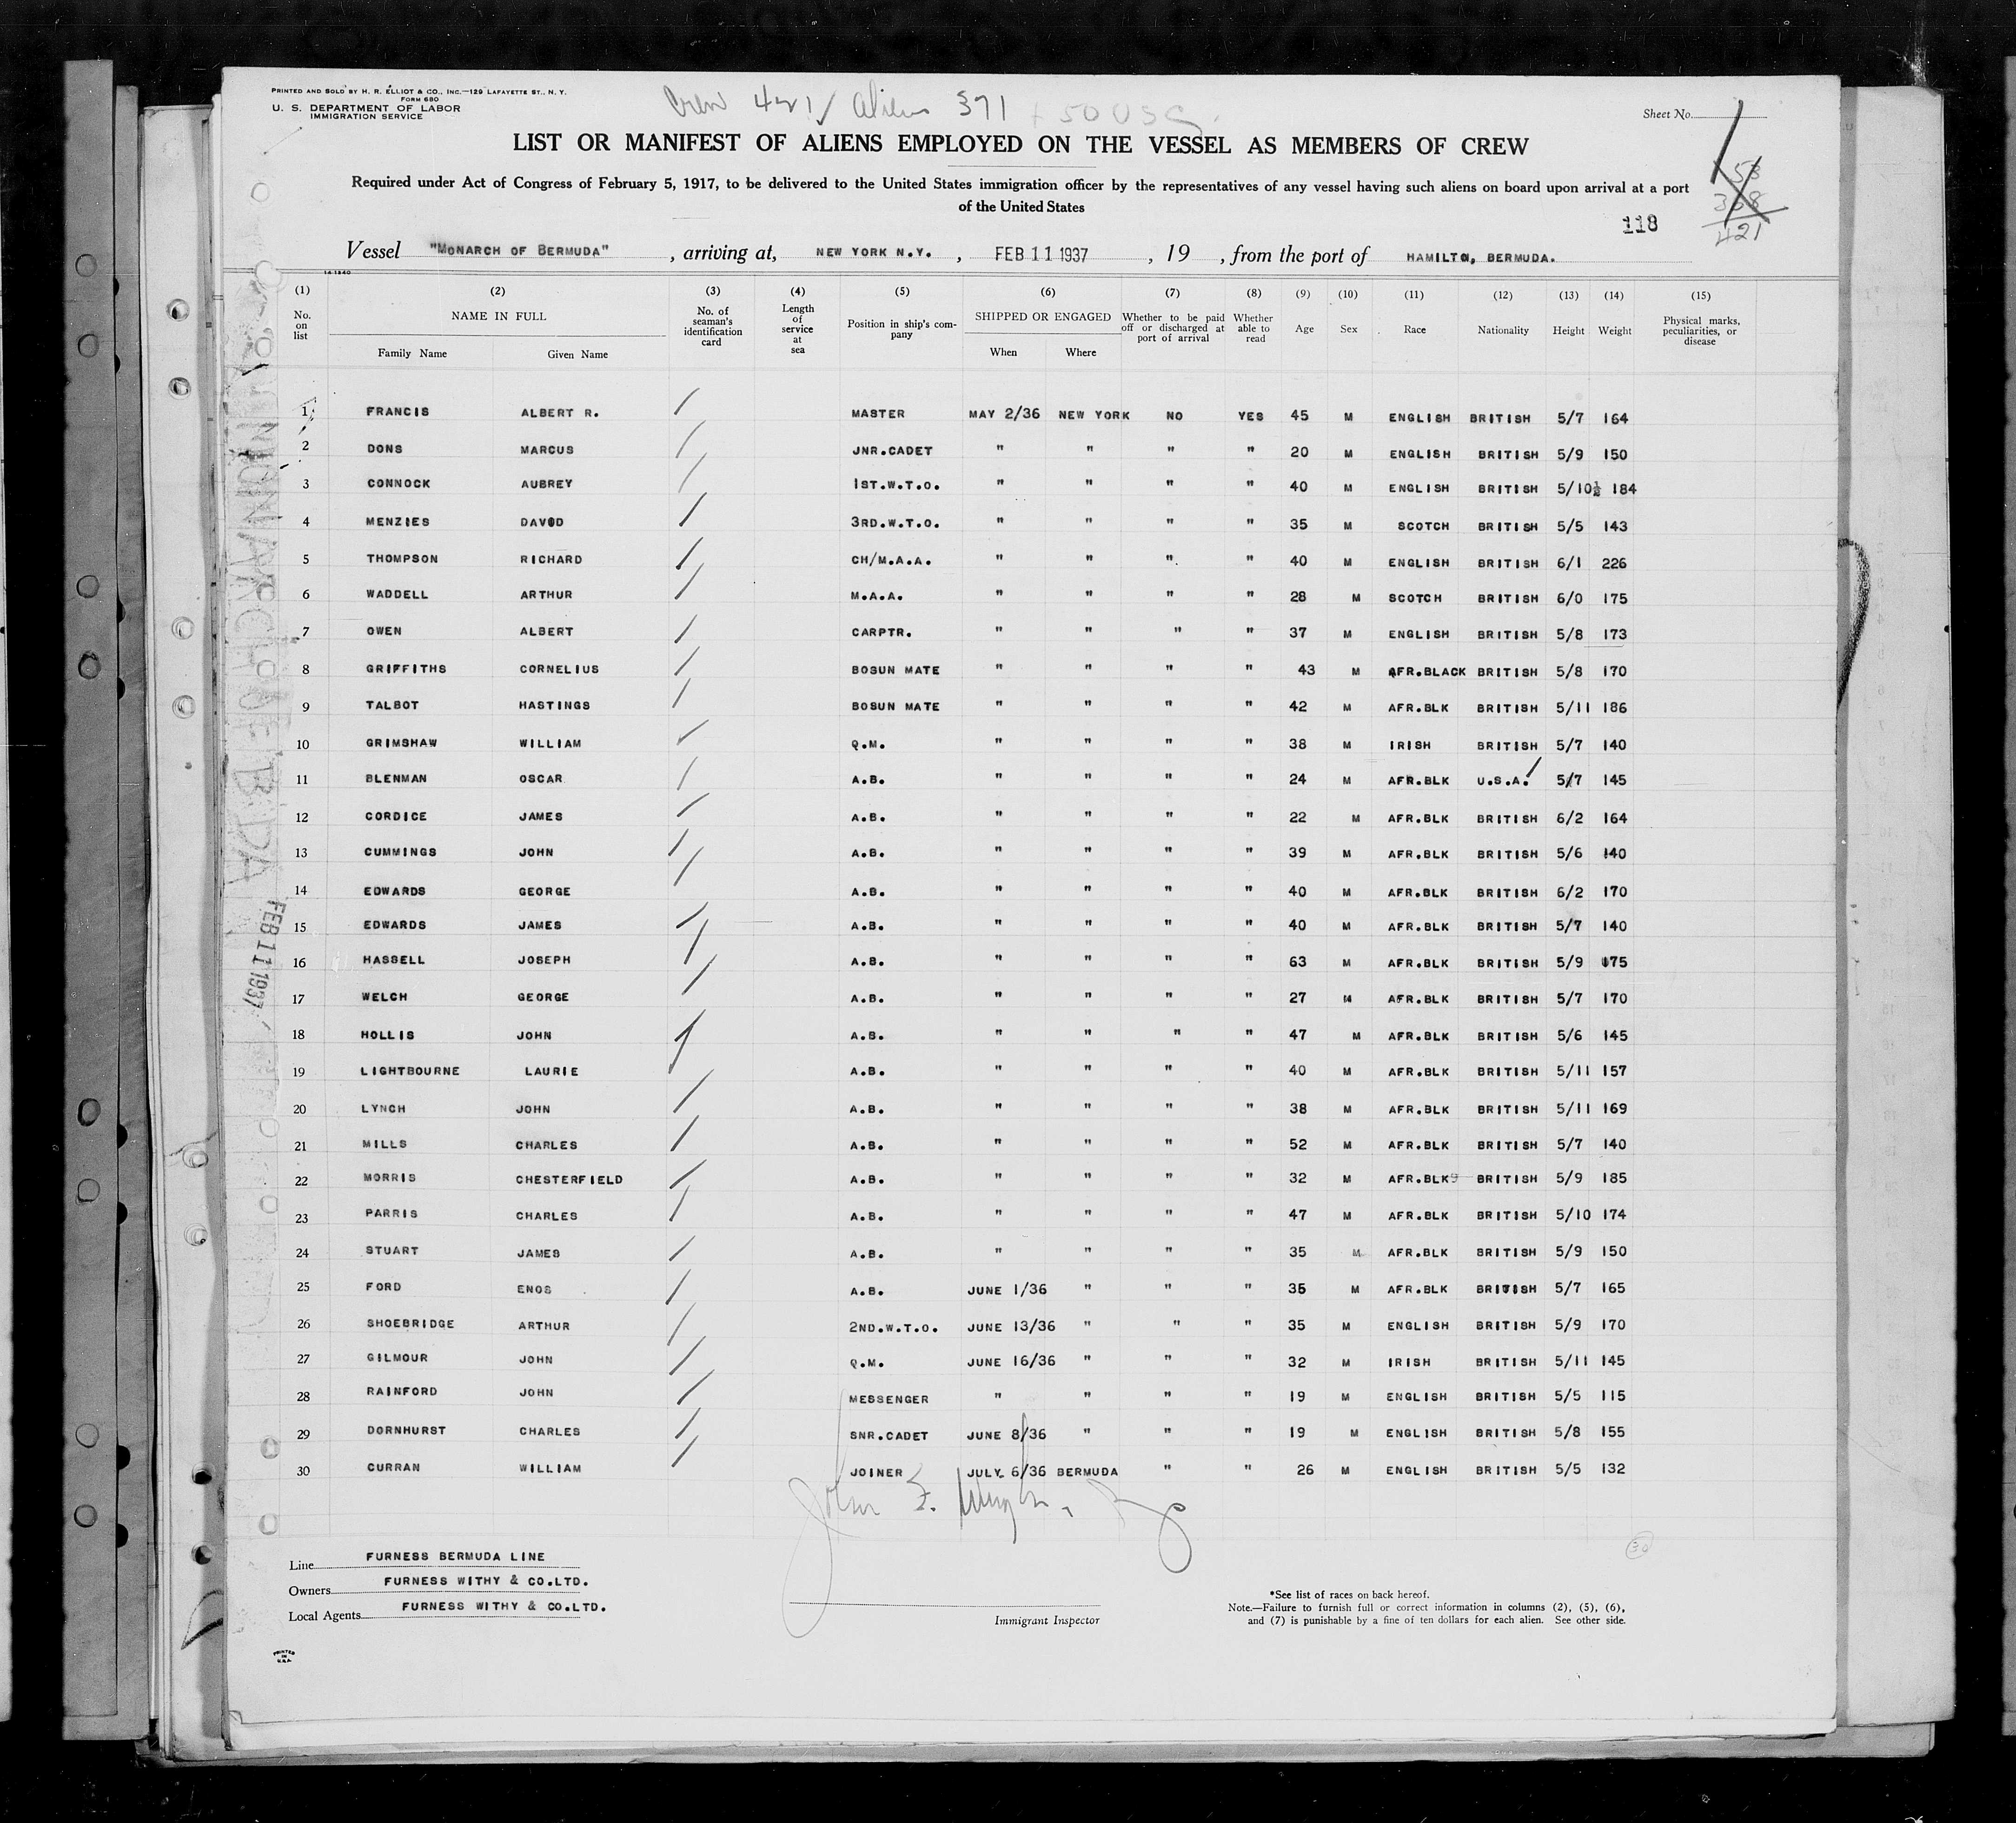 PRINTED AND SOLD BY H. R. ELLIOT & CO., INC.—129 LAFAYETTE ST., N. Y.
FORM 680
U. S. DEPARTMENT OF LABOR
IMMIGRATION SERVICE
Crew 421 / Aliens 371 + 50 USC.
Sheet No.
LIST OR MANIFEST OF ALIENS EMPLOYED ON THE VESSEL AS MEMBERS OF CREW
Required under Act of Congress of February 5, 1917, to be delivered to the United States immigration officer by the representatives of any vessel having such aliens on board upon arrival at a port
of the United States
53
368
421
118
Vessel "MONARCH OF BERMUDA" , arriving at, NEW YORK N.Y. , FEB 11 1937 , 19 , from the port of HAMILTN, BERMUDA.
14-1240
(1) (2) (3) (4) (5) (6) (7) (8) (9) (10) (11) (12) (13) (14) (15)
No. on list NAME IN FULL Family Name Given Name No. of seaman's identification card Length of service at sea Position in ship's company SHIPPED OR ENGAGED When Where Whether to be paid off or discharged at port of arrival Whether able to read Age Sex Race Nationality Height Weight Physical marks, peculiarities, or disease
1 FRANCIS ALBERT R. MASTER MAY 2/36 NEW YORK NO YES 45 M ENGLISH BRITISH 5/7 164
2 DONS MARCUS JNR.CADET " " " " 20 M ENGLISH BRITISH 5/9 150
3 CONNOCK AUBREY 1ST.W.T.O. " " " " 40 M ENGLISH BRITISH 5/10½ 184
4 MENZIES DAVOD 3RD.W.T.O. " " " " 35 M SCOTCH BRITISH 5/5 143
5 THOMPSON RICHARD CH/M.A.A. " " " " 40 M ENGLISH BRITISH 6/1 226
6 WADDELL ARTHUR M.A.A. " " " " 28 M SCOTCH BRITISH 6/0 175
7 OWEN ALBERT CARPTR. " " " " 37 M ENGLISH BRITISH 5/8 173
8 GRIFFITHS CORNELIUS BOSUN MATE " " " " 43 M AFR.BLACK BRITISH 5/8 170
9 TALBOT HASTINGS BOSUN MATE " " " " 42 M AFR.BLK BRITISH 5/11 186
10 GRIMSHAW WILLIAM Q.M. " " " " 38 M IRISH BRITISH 5/7 140
11 BLENMAN OSCAR A.B. " " " " 24 M AFR.BLK U.S.A. 5/7 145
12 CORDICE JAMES A.B. " " " " 22 M AFR.BLK BRITISH 6/2 164
13 CUMMINGS JOHN A.B. " " " " 39 M AFR.BLK BRITISH 5/6 140
14 EDWARDS GEORGE A.B. " " " " 40 M AFR.BLK BRITISH 6/2 170
15 EDWARDS JAMES A.B. " " " " 40 M AFR.BLK BRITISH 5/7 140
16 HASSELL JOSEPH A.B. " " " " 63 M AFR.BLK BRITISH 5/9 175
17 WELCH GEORGE A.B. " " " " 27 M AFR.BLK BRITISH 5/7 170
18 HOLLIS JOHN A.B. " " " " 47 M AFR.BLK BRITISH 5/6 145
19 LIGHTBOURNE LAURIE A.B. " " " " 40 M AFR.BLK BRITISH 5/11 157
20 LYNCH JOHN A.B. " " " " 38 M AFR.BLK BRITISH 5/11 169
21 MILLS CHARLES A.B. " " " " 52 M AFR.BLK BRITISH 5/7 140
22 MORRIS CHESTERFIELD A.B. " " " " 32 M AFR.BLK BRITISH 5/9 185
23 PARRIS CHARLES A.B. " " " " 47 M AFR.BLK BRITISH 5/10 174
24 STUART JAMES A.B. " " " " 35 M AFR.BLK BRITISH 5/9 150
25 FORD ENOS A.B. JUNE 1/36 " " " 35 M AFR.BLK BRITISH 5/7 165
26 SHOEBRIDGE ARTHUR 2ND.W.T.O. JUNE 13/36 " " " 35 M ENGLISH BRITISH 5/9 170
27 GILMOUR JOHN Q.M. JUNE 16/36 " " " 32 M IRISH BRITISH 5/11 145
28 RAINFORD JOHN MESSENGER " " " " 19 M ENGLISH BRITISH 5/5 115
29 DORNHURST CHARLES SNR.CADET JUNE 8/36 " " " 19 M ENGLISH BRITISH 5/8 155
30 CURRAN WILLIAM JOINER JULY 6/36 BERMUDA " " 26 M ENGLISH BRITISH 5/5 132
MONARCH OF B'DA
FEB 11 1937
John
30
Line FURNESS BERMUDA LINE
Owners FURNESS WITHY & CO.LTD.
Local Agents FURNESS WITHY & CO.LTD.
Immigrant Inspector
*See list of races on back hereof.
Note.—Failure to furnish full or correct information in columns (2), (5), (6),
and (7) is punishable by a fine of ten dollars for each alien. See other side.
PRINTED
IN
U.S.A.